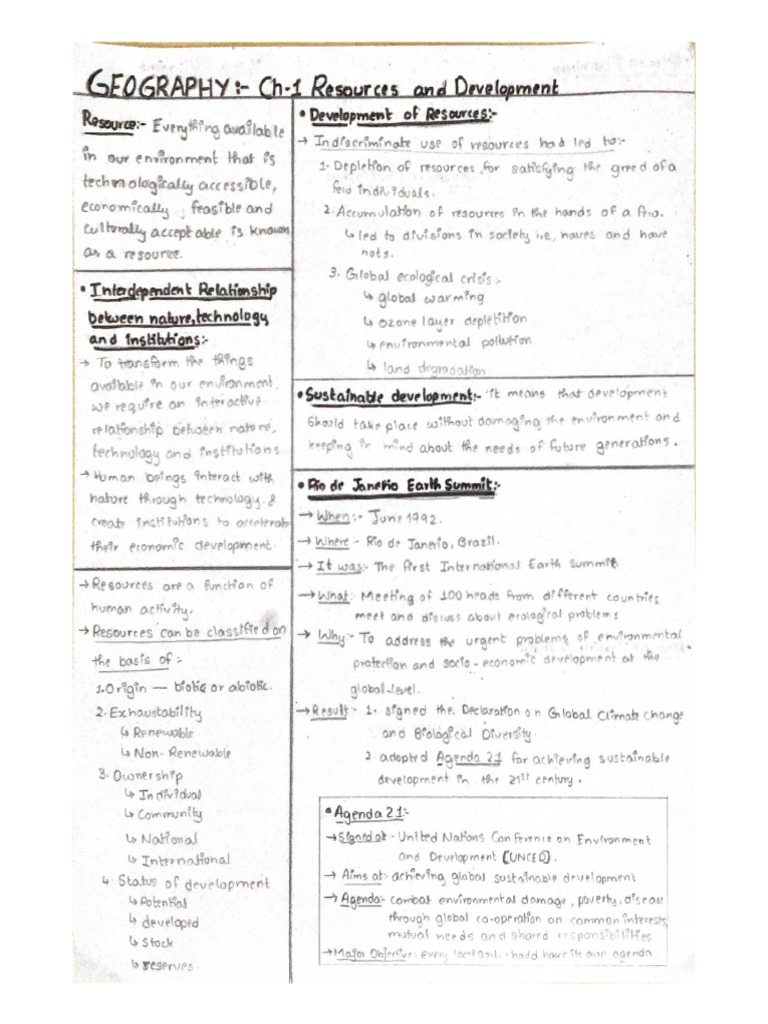 GEOGRAPHY:- Ch-1 Resources and Development
Resource:- Everything available
in our environment that is
technologically accessible,
economically, feasible and
culturally acceptable is known
as a resource.
• Interdependent Relationship
between nature, technology
and institutions:-
→ To transform the things
available in our environment,
we require an interactive
relationship between nature,
technology and institutions.
→ Human beings interact with
nature through technology &
create institutions to accelerate
their economic development.
→ Resources are a function of
human activity.
→ Resources can be classified on
the basis of:-
1. Origin — biotic or abiotic.
2. Exhaustability
↳ Renewable
↳ Non-Renewable
3. Ownership
↳ Individual
↳ Community
↳ National
↳ International
4. Status of development
↳ Potential
↳ developed
↳ Stock
↳ reserves.
• Development of Resources:-
→ Indiscriminate use of resources had led to:-
1. Depletion of resources for satisfying the greed of a
few individuals.
2. Accumulation of resources in the hands of a few.
↳ led to divisions in society i.e, haves and have
nots.
3. Global ecological crisis:-
↳ global warming
↳ ozone layer depletition
↳ environmental pollution
↳ land degradation
• Sustainable development:- it means that development
should take place without damaging the environment and
keeping in mind about the needs of future generations.
• Rio de Janerio Earth Summit:-
→ When:- June 1992.
→ Where:- Rio de Janerio, Brazil.
→ It was:- The first International Earth summit
→ What:- Meeting of 100 heads from different countries
meet and discuss about ecological problems
→ Why:- To address the urgent problems of environmental
protection and socio-economic development at the
global-level.
→ Result:- 1. signed the Declaration on Global Climate Change
and Biological Diversity.
2. adopted Agenda 21 for achieving sustainable
development in the 21st century.
• Agenda 21:-
→ Signed at:- United Nations Conference on Environment
and Development [UNCED].
→ Aims at:- achieving global sustainable development
→ Agenda:- combat environmental damage, poverty, disease
through global co-operation on common interests,
mutual needs and shared responsibilities
→ Major Objective:- every local govt. should have its own agenda